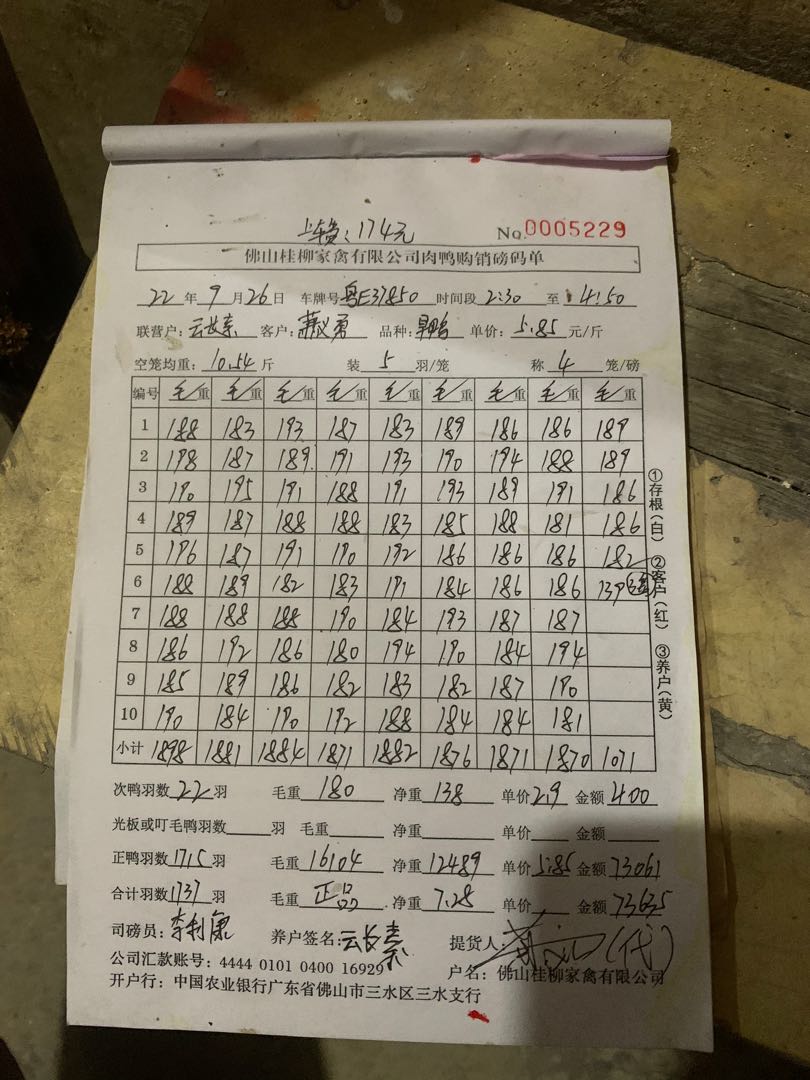 上车费:174元 No.0005229
佛山桂柳家禽有限公司肉鸭购销磅码单
22年9月26日 车牌号粤E37850 时间段2:30至4:50
联营户:云长素 客户:勇 品种: 单价:5.85元/斤
空笼均重:10.54斤 装5羽/笼 称4笼/磅
编号 毛/重 毛/重 毛/重 毛/重 毛/重 毛/重 毛/重 毛/重 毛/重
1 188 183 193 187 183 189 186 186 189
2 198 187 189 191 193 190 194 188 189
3 190 195 191 188 191 193 189 191 186
4 189 187 188 188 183 185 188 181 186
5 196 187 191 190 192 186 186 186 182
6 188 189 182 183 191 184 186 186 139
7 188 188 188 190 184 193 187 187
8 186 192 186 180 194 190 184 194
9 185 189 186 182 183 182 187 190
10 190 184 190 192 188 184 184 181
小计 1898 1881 1884 1871 1882 1876 1871 1870 1071
①存根(白) ②客户(红) ③养户(黄)
次鸭羽数22羽 毛重180 净重138 单价2.9 金额400
光板或叮毛鸭羽数 羽 毛重 净重 单价 金额
正鸭羽数1715羽 毛重16104 净重12489 单价5.85 金额73061
合计羽数1737羽 毛重正品 净重7.28 单价 金额73635
司磅员:李利康 养户签名:云长素 提货人:(代)
公司汇款账号:4444 0101 0400 16929 户名:佛山桂柳家禽有限公司
开户行:中国农业银行广东省佛山市三水区三水支行